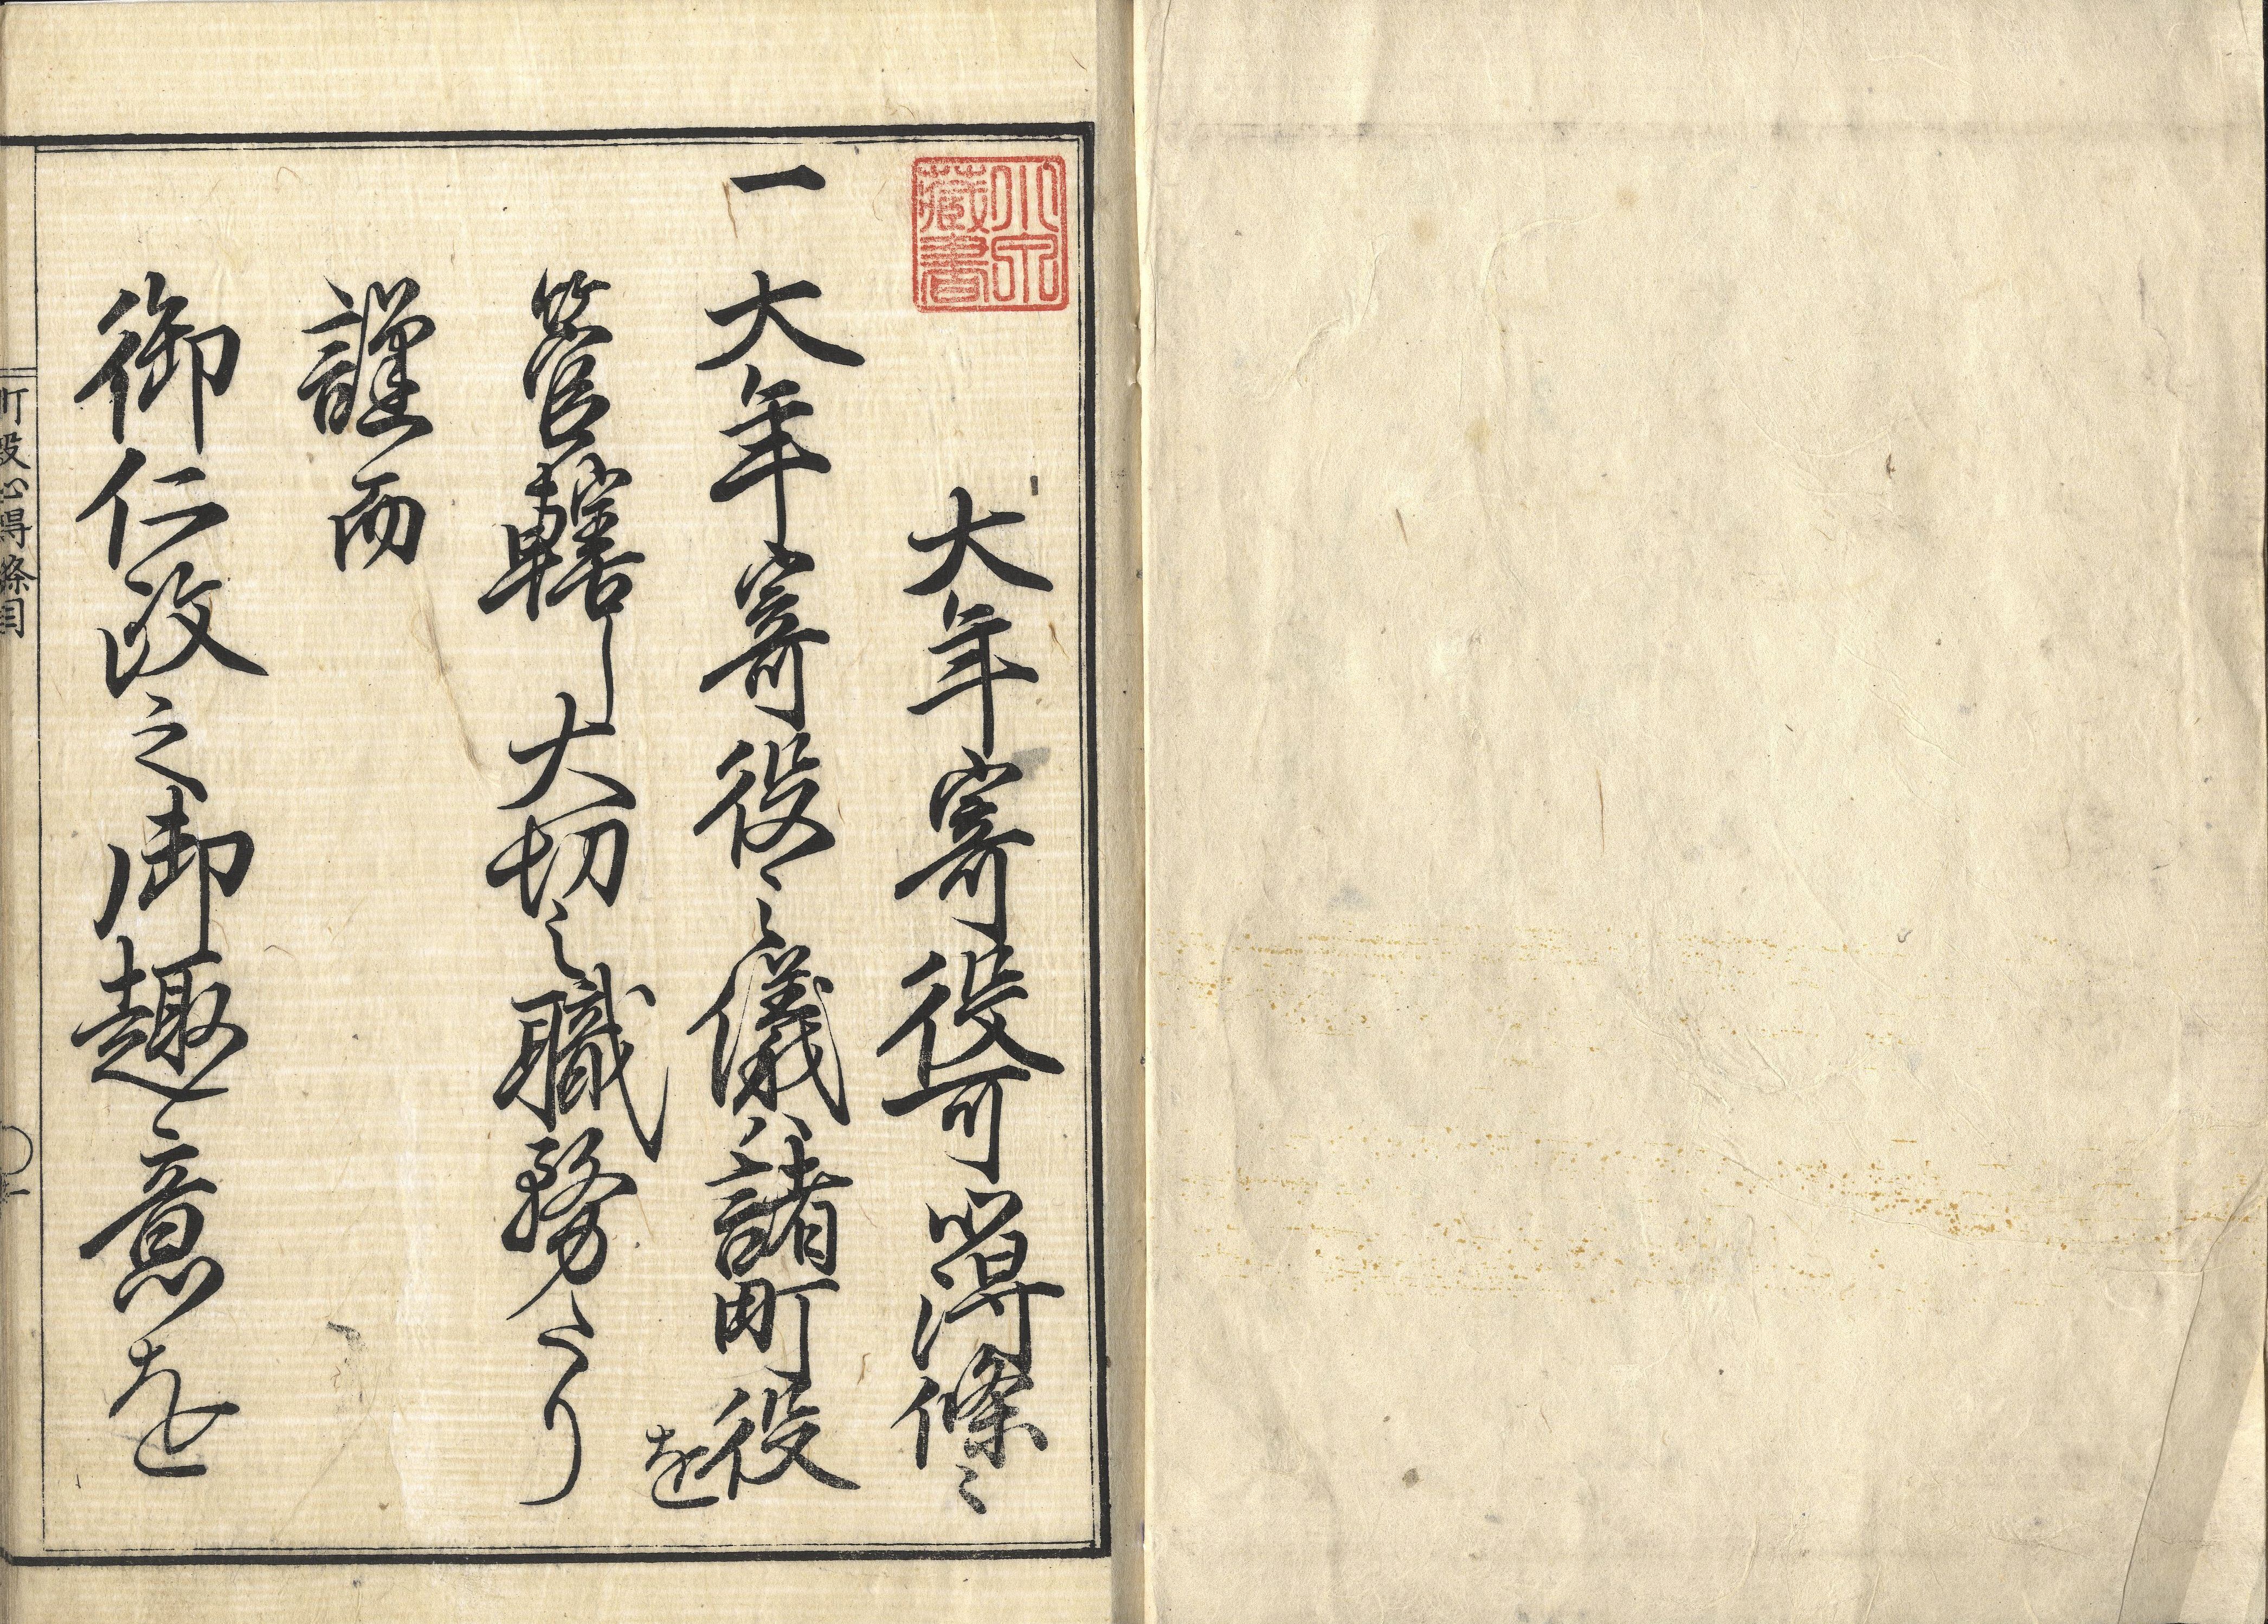 小泉
藏書
大年寄役可心得條々
一大年寄役之儀ハ諸町役を
管轄し大切之職務たり
謹而
御仁政之御趣意を
町役心得條目